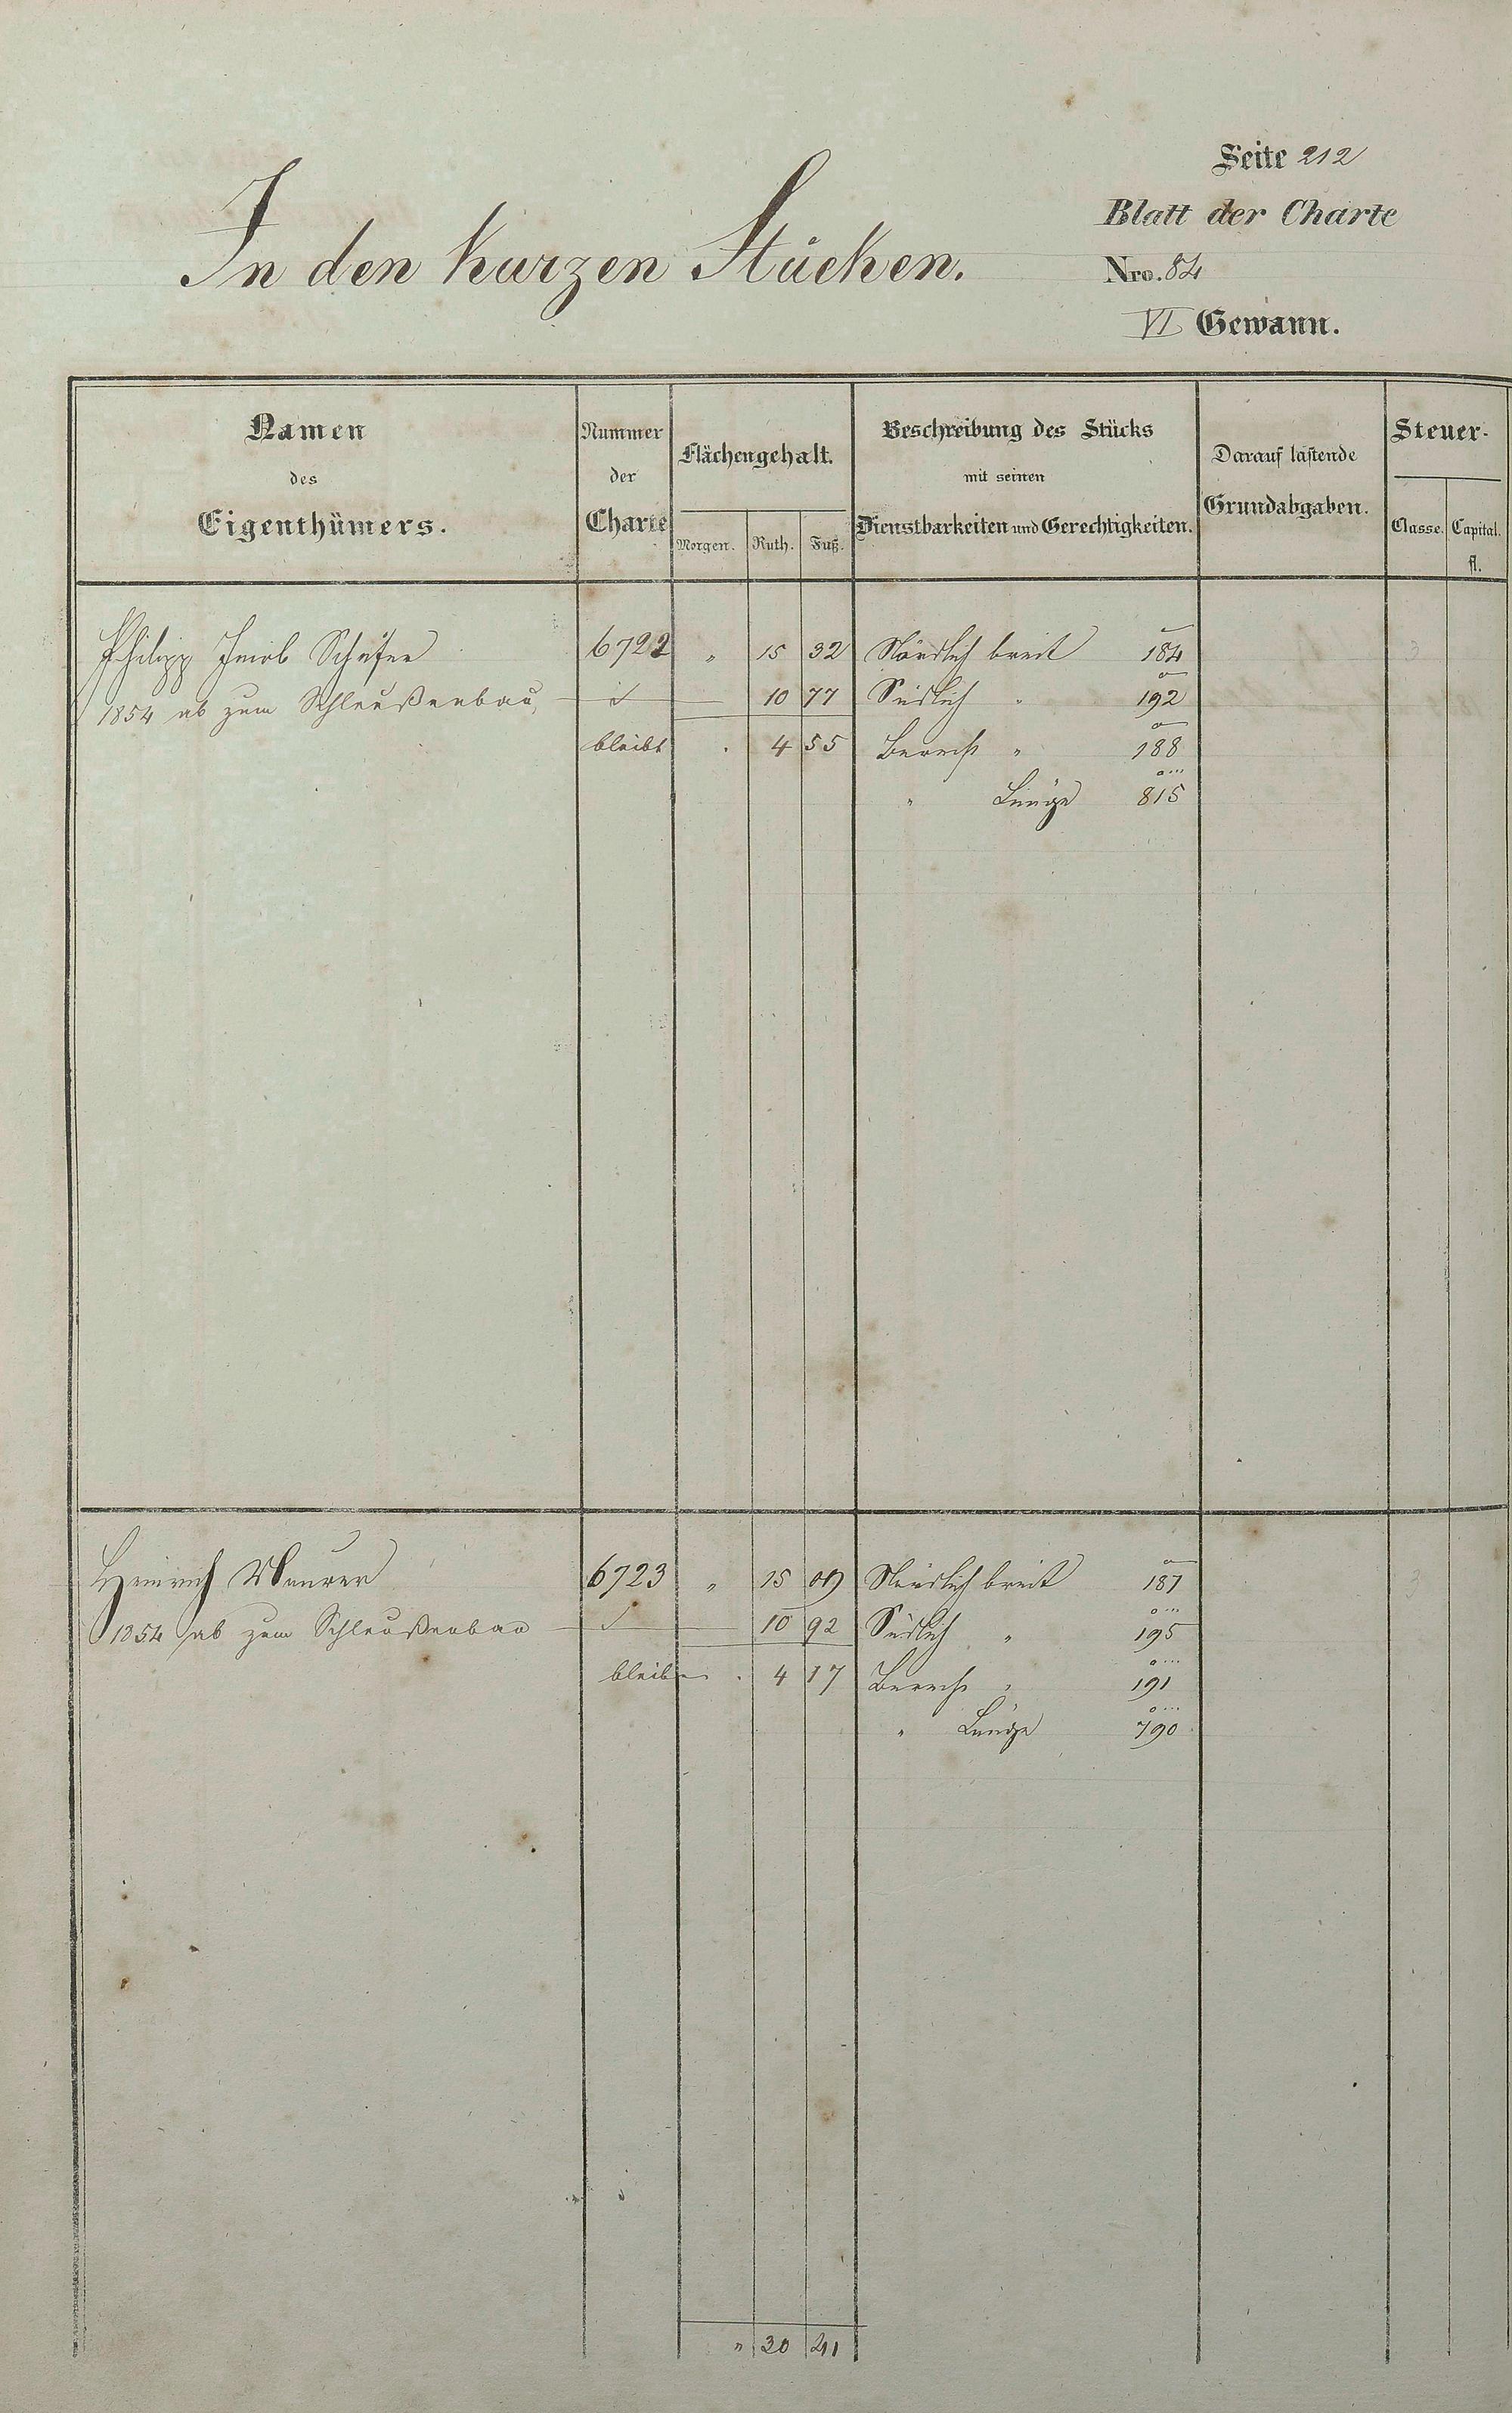 Seite 212
Blatt der Charte
In den kurzen Stücken.
Nro. 84
VI Gewann.
Namen des Eigenthümers.
Nummer der Charte
Flächengehalt.
Morgen. Ruth. Fuß.
Beschreibung des Stücks mit seinen Dienstbarkeiten und Gerechtigkeiten.
Darauf lastende Grundabgaben.
Steuer-
Classe. Capital. fl.
Philipp Jacob Schäfer 6722 " 15 32 Nördlich breit 184
1854 ab zum Schleußenbau, 10 77 Südlich " 192
bleibt . 4 55 " 188
" Länge 815
3
Heinrich Maurer 6723 " 15 09 Nördlich breit 187
1854 ab zum Schleußenbau 10 92 Südlich " 195
bleiben . 4 17 " 191
" Länge 790
3
" 30 41